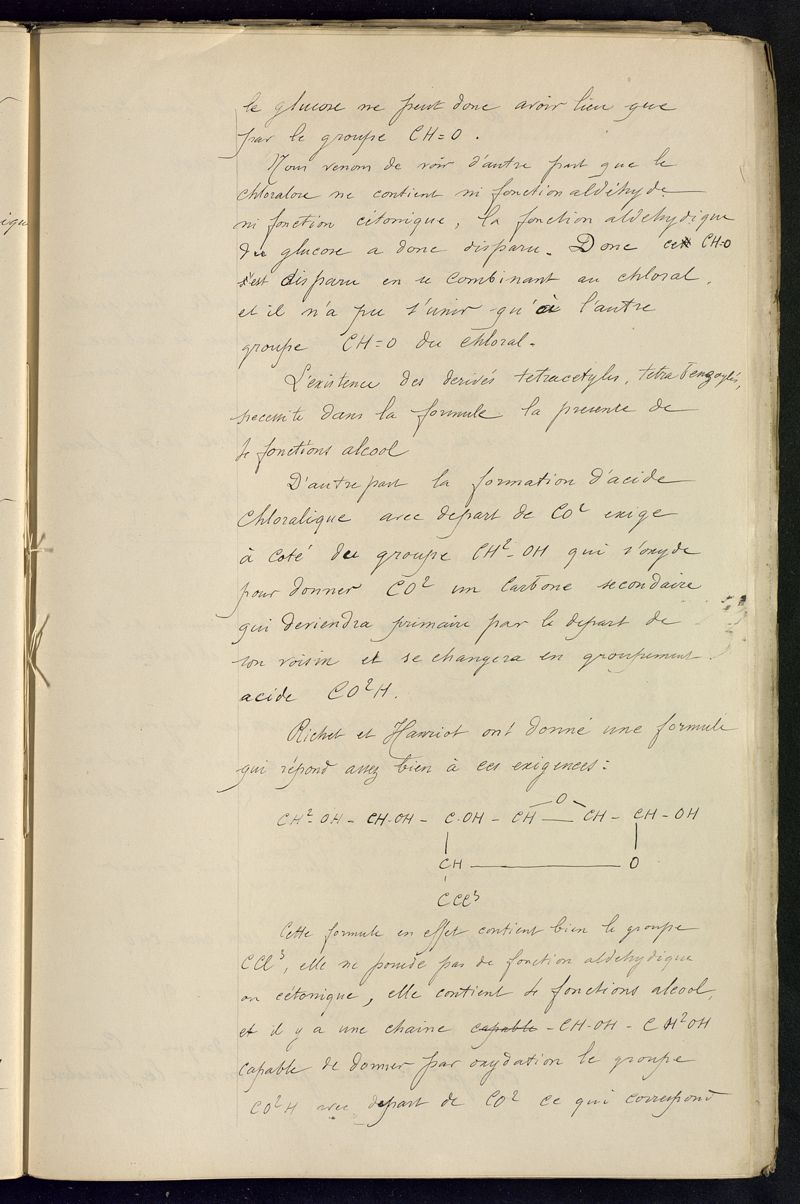 le glucose ne peut donc avoir lieu que
par le groupe CH=O.
Nous venons de voir d'autre part que le
chloralose ne contient ni fonction aldéhyde
ni fonction cétonique, la fonction aldéhydique
du glucose a donc disparu. Donc ce CH-O
s'est disparu en se combinant au chloral,
et il n'a pu s'unir qu'à l'autre
groupe CH=O du chloral.
L'existence des derivés tetracetyles, tetra benzoylés,
necessite dans la formule la presence de
4 fonctions alcool
D'autre part la formation d'acide
Chloralique avec depart de CO² exige
à coté du groupe CH²-OH qui s'oxyde
pour donner CO² un carbone secondaire
qui deviendra primaire par le depart de
son voisin et se changera en groupement
acide CO²H.
Richet et Hanriot ont donné une formule
qui répond assez bien à ces exigences:
O
CH²-OH - CH-OH - C-OH - CH — CH - CH-OH
CH — O
CCl³
Cette formule en effet contient bien le groupe
CCl³, elle ne possède pas de fonction aldehydique
ou cétonique, elle contient 4 fonctions alcool,
et il y a une chaine capable -CH-OH-CH²OH
capable de donner par oxydation le groupe
CO²H avec depart de CO² ce qui correspond